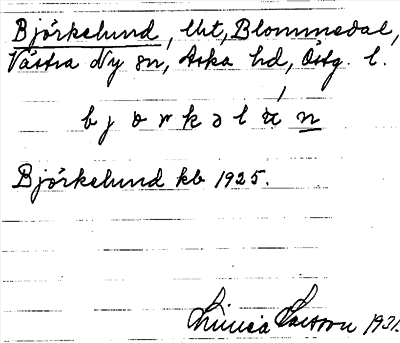 Björkelund, lht, Blommedal,
Västra Ny sn, Aska hd, Östg. l.
Björkelund kb 1925.
Linnea Larsson 1931.